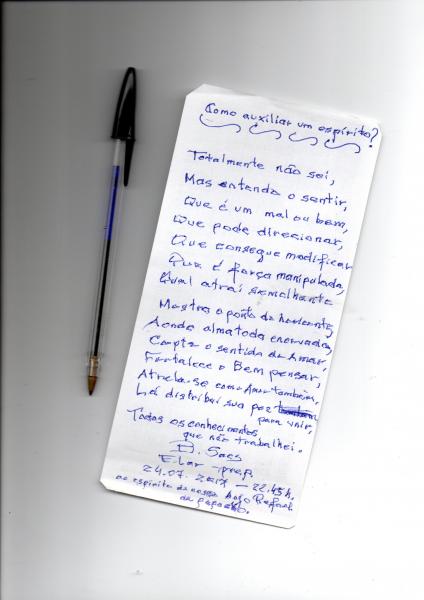 Como auxiliar um espírito?
Totalmente não sei,
Mas entendo o sentir,
Que é um mal ou bem,
Que pode direcionar,
Que consegue modificar
Que é força manipulada,
Qual atrai semelhante
Mostra o ponto do horizonte,
Aonde alma toda enervada,
Compta o sentido de Amar,
Fortalece o Bem pensar,
Atreba-se como Amor também,
Lá distribui sua paz
para unir,
Todos os conhecimentos
que não trabalhei.
D. Saes
E. Lar
24.07.2017 - 22:45h.
ao espírito da nossa